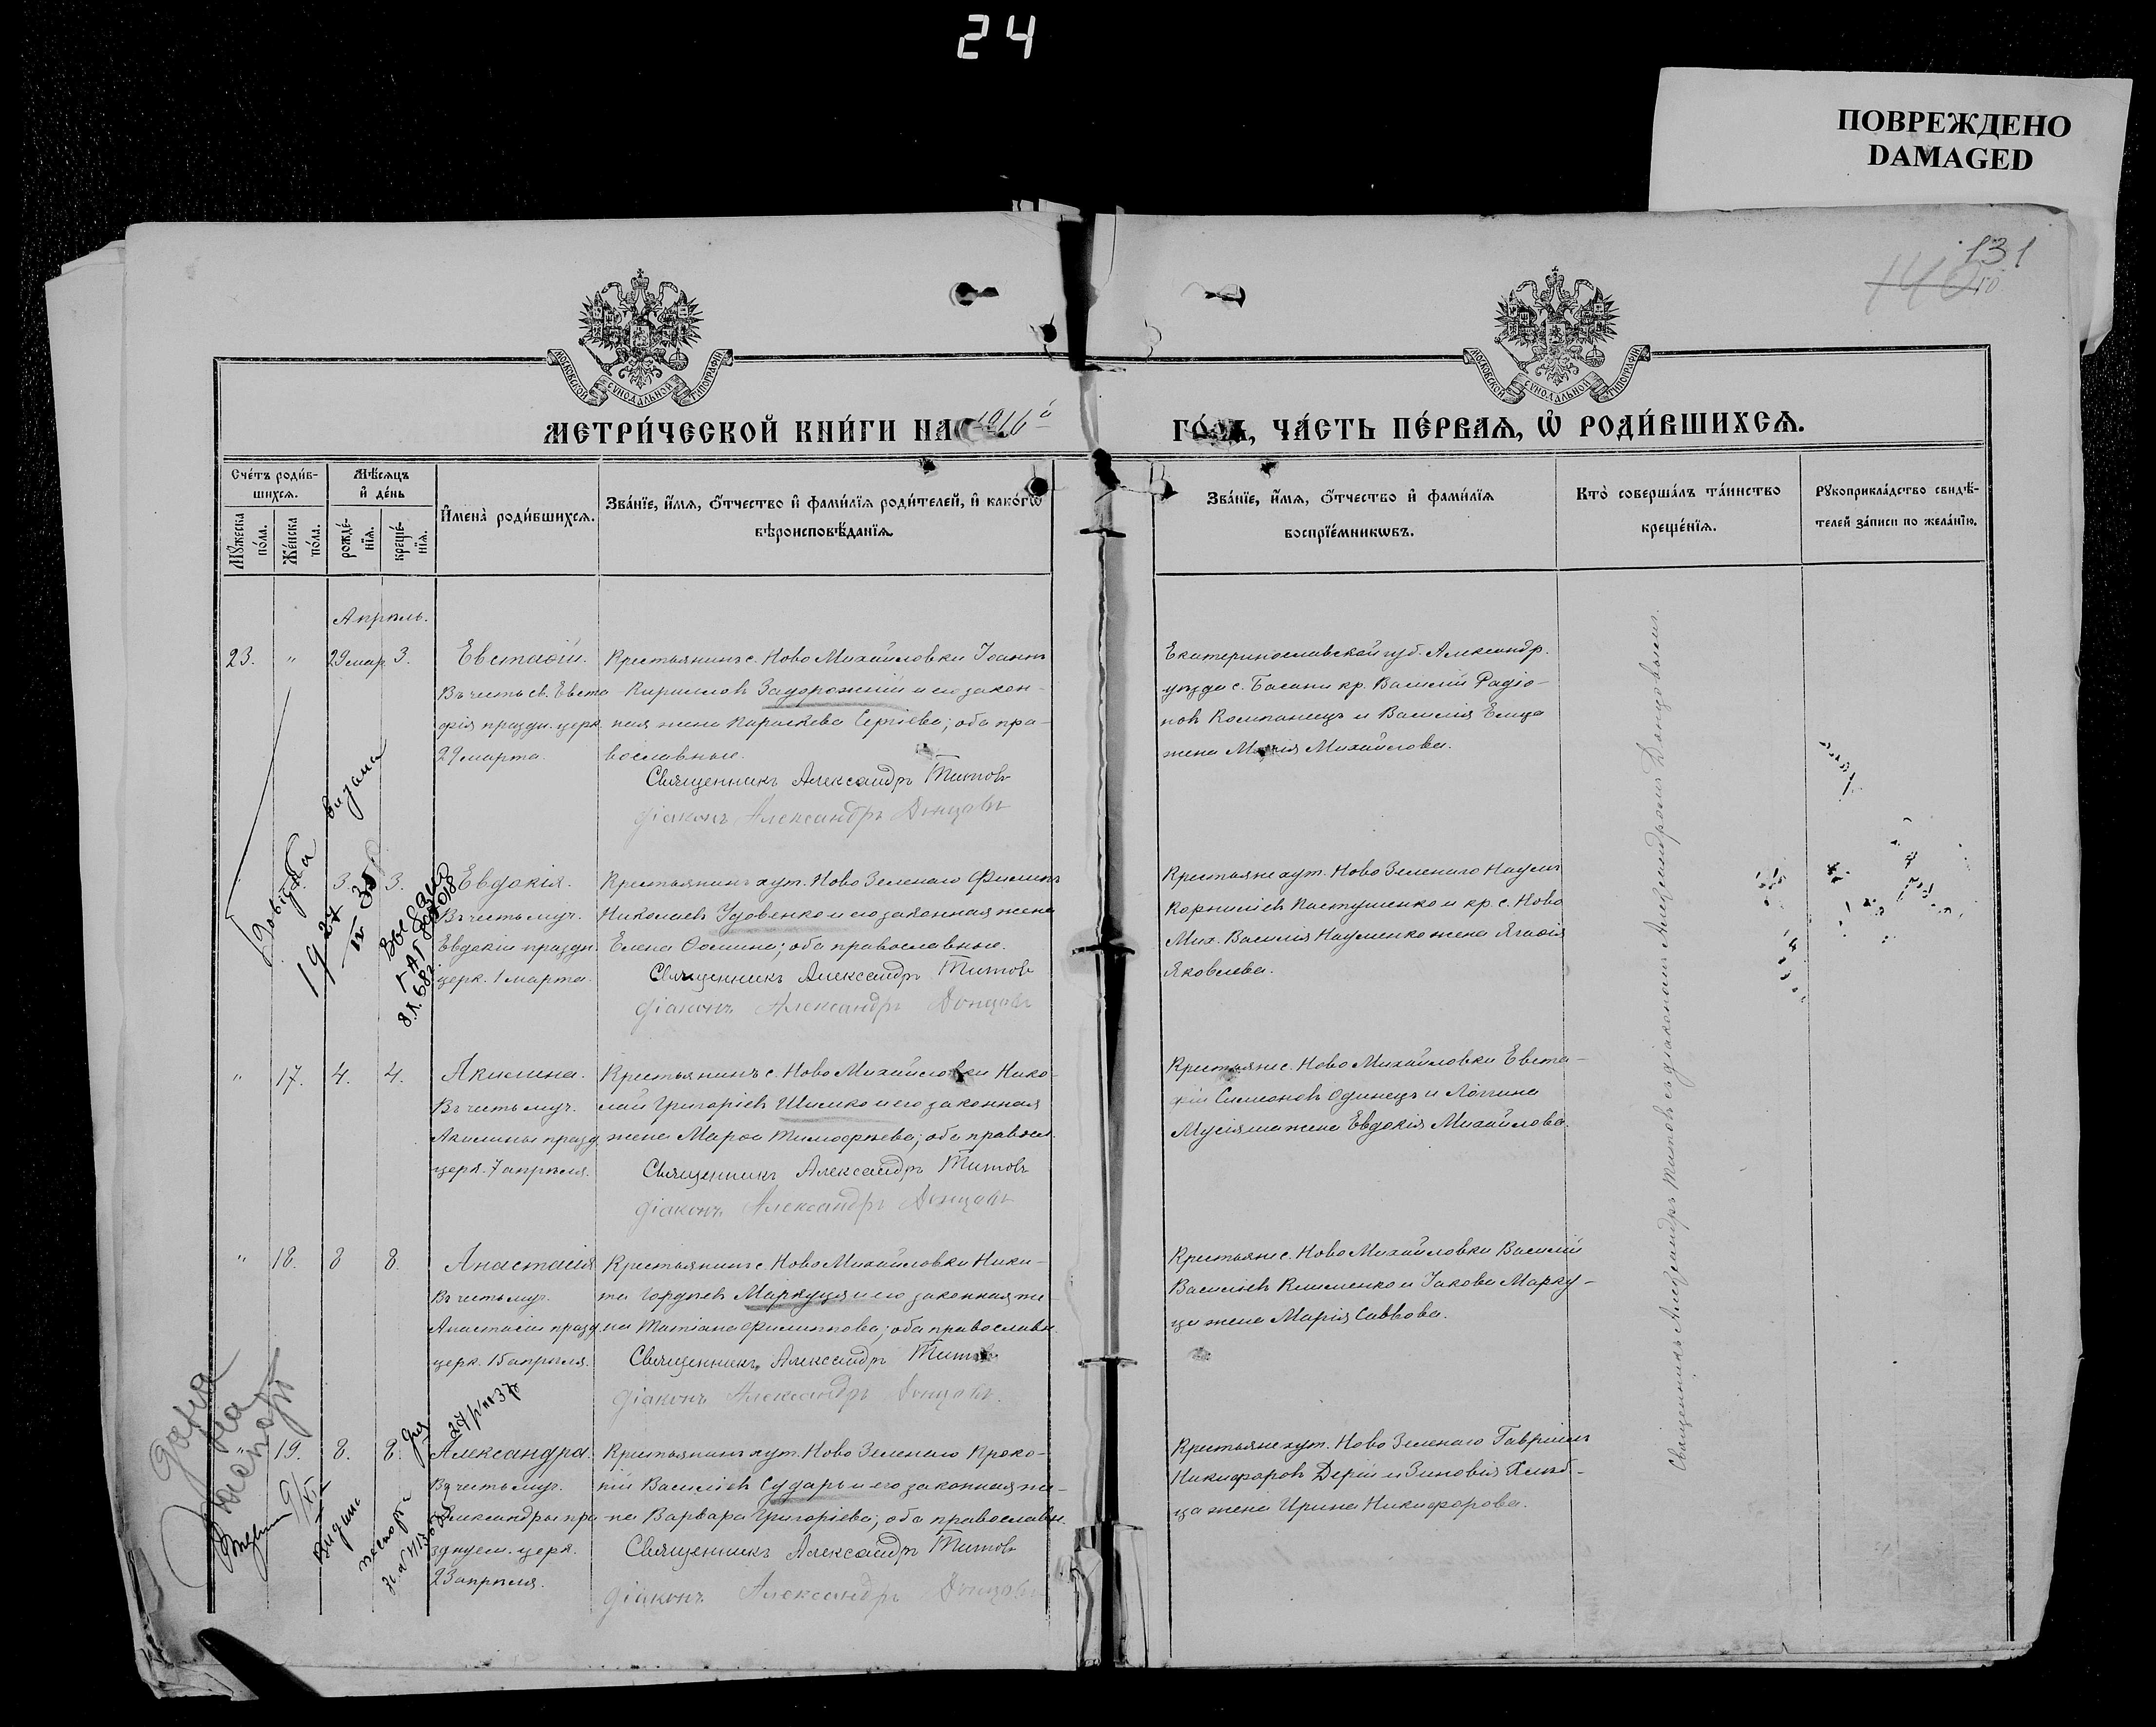 24
ПОВРЕЖДЕНО
DAMAGED
131
140
МОСКОВСКОЙ СУНОДАЛЬНОЙ ТИПОГРАФІИ
МОСКОВСКОЙ СУНОДАЛЬНОЙ ТИПОГРАФІИ
МЕТРИ́ЧЕСКОЙ КНИ́ГИ НА 1916й
ГО́ДЪ, ЧА́СТЬ ПЕ́РВАѦ, Ѡ҆ РОДИ́ВШИХСѦ.
Сче́тъ роди́в-
шихсѧ.
Мꙋ́жеска
по́ла.
Же́нска
по́ла.
Мѣ́сѧцъ
и҆ де́нь
рожде́-
нїѧ.
креще́-
нїѧ.
И҆мена̀ роди́вшихсѧ.
Зва́нїе, и҆́мѧ, ѻ҆́тчество и҆ фами́лїѧ роди́телей, и҆ како́гѡ
вѣроисповѣ́данїѧ.
Зва́нїе, и҆́мѧ, ѻ҆́тчество и҆ фами́лїѧ
воспрїе́мникѡвъ.
Кто̀ соверша́лъ та́инство
креще́нїѧ.
Рꙋкоприкла́дство свидѣ́-
телей за́писи по жела́нїю.
Апрѣль.
23. " 29 мар. 3. Евстаѳій.
Въ честь св. Евста-
фія праздн. церк.
29 марта.
Крестьянинъ с. Ново Михайловки Іоаннъ
Кирилловъ Задорожній и его закон-
ная жена Параскева Сергіева; оба пра-
вославные.
Священникъ Александръ Титовъ
діаконъ Александръ Донцовъ
Екатеринославской губ. Александр.
уѣзда с. Басани кр. Василій Радіо-
новъ Компанецъ и Василія Емца
жена Марія Михайлова.
3. 3. Евдокія.
Въ честь муч.
Евдокіи праздн.
церк. 1 марта.
Крестьянинъ хут. Ново Зеленаго Филиппъ
Николаевъ Удовенко и его законная жена
Елена Ѳомина; оба православные.
Священникъ Александръ Титовъ
діаконъ Александръ Донцовъ
Крестьяне хут. Ново Зеленаго Наумъ
Корниліевъ Пастушенко и кр. с. Ново
Мих. Василія Науменко жена Агаѳія
Яковлева.
" 17. 4. 4. Акилина.
Въ честь муч.
Акилины празд.
церк. 7 апрѣля.
Крестьянинъ с. Ново Михайловки Нико-
лай Григоріевъ Шимко и его законная
жена Марѳа Тимофѣева; оба правосл.
Священникъ Александръ Титовъ
діаконъ Александръ Донцовъ
Крестьяне с. Ново Михайловки Евста-
фій Симеоновъ Одинецъ и Логгина
Мусіяша жена Евдокія Михайлова.
" 18. 8 8. Анастасія
Въ честь муч.
Анастасіи празд.
церк. 15 апрѣля.
Крестьянинъ с. Ново Михайловки Ники-
та Гордѣевъ Маркуца и его законная же-
на Татіана Филиппова; оба православн.
Священникъ Александръ Титовъ
діаконъ Александръ Донцовъ
Крестьяне с. Ново Михайловки Василій
Васильевъ Клименко и Іакова Марку-
ца жена Марія Саввова.
" 19. 8. 8. Александра.
Въ честь муч.
Александры пра-
зднуем. церк.
23 апрѣля.
Крестьянинъ хут. Ново Зеленаго Проко-
пій Васильевъ Сударь и его законная же-
на Варвара Григоріева; оба православн.
Священникъ Александръ Титовъ
діаконъ Александръ Донцовъ
Крестьяне хут. Ново Зеленаго Гавріилъ
Никифоровъ Дерій и Зиновія Хлѣб-
ца жена Ирина Никифорова.
Священникъ Александръ Титовъ съ діакономъ Александромъ Донцовымъ.
Довідка видана